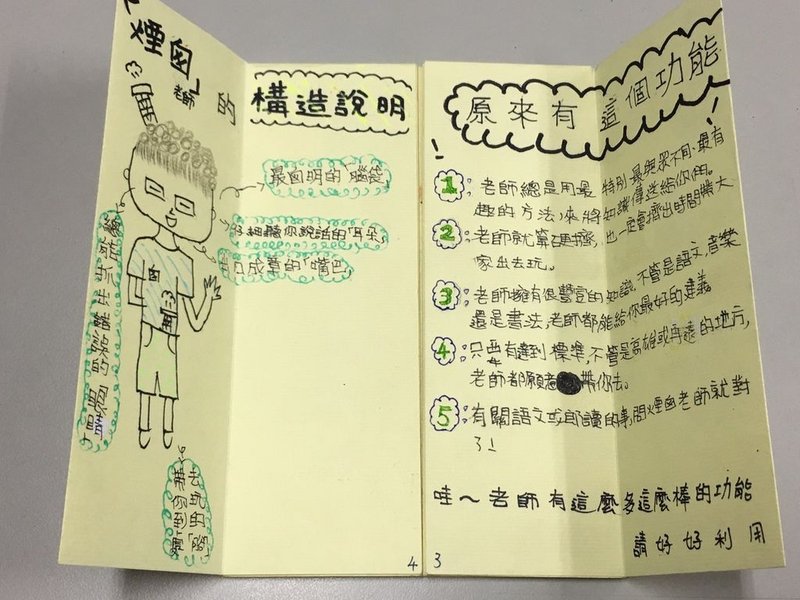 「煙囪」
老師 的
構造說明
最囪明的「腦袋」
仔細聽你說話的「耳朵」
出口成章的「嘴巴」
去玩的「腳」
帶你到處
4
原來有這個功能!
1:老師總是用最特別、最與眾不同、最有
趣的方法,來將知識傳送給你們。
2:老師就算再擠,也一定會擠出時間帶大
家出去玩。
3:老師擁有很豐富的知識,不管是語文,音樂
還是書法,老師都能給你最好的建議
4:只要有達到標準,不管是高雄或再遠的地方,
老師都願意帶你去。
5:有關語文或朗讀的事,問煙囪老師就對
了!
哇~老師有這麼多這麼棒的功能
請好好利用
3